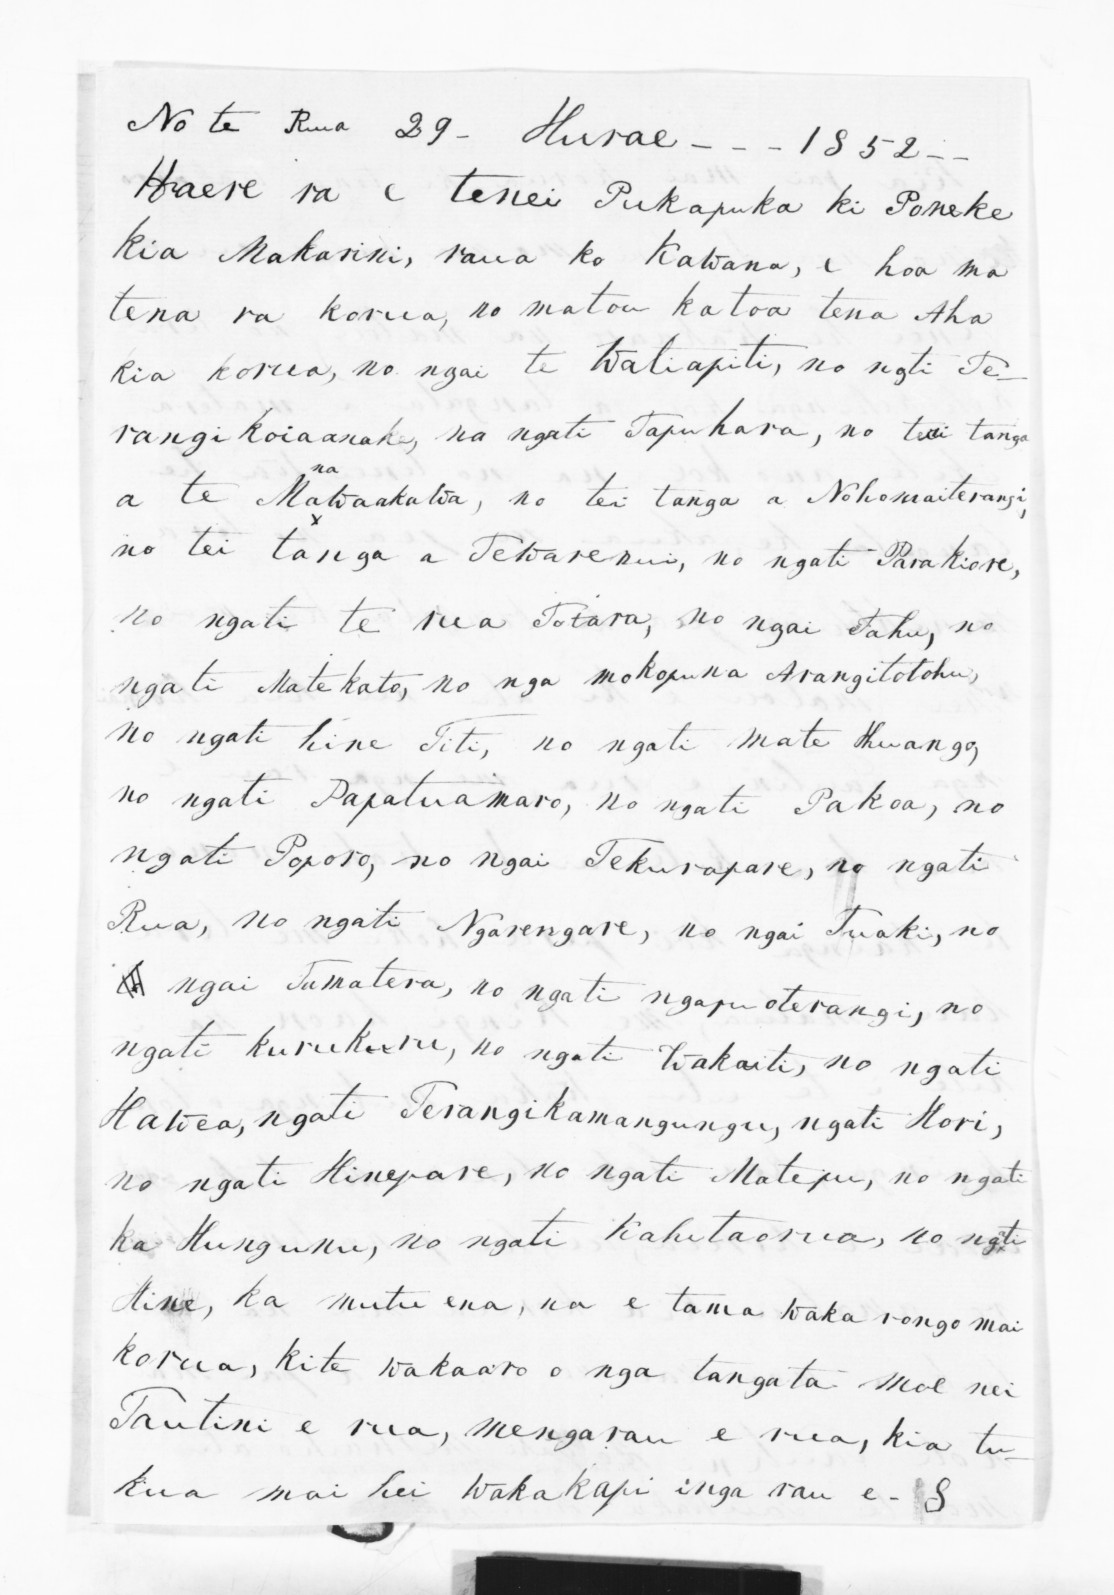 No te Rua 29 - Hurae - - - 1852 - -
Haere ra e tenei Pukapuka ki Poneke
kia Makarini, raua ko Kawana, e hoa ma
tena ra korua, no matou katoa tena Aha
kia korua, no ngai te Watiapiti, no ngti Te-
rangikoiaanake, na ngati Tapuhara, no tei tanga
a te Mawaakawa, no tei tanga a Nohomaiterangi,
na
no tei tanga a Tewarenui, no ngati Parakiore,
no ngati te rua Totara, no ngai Tahu, no
ngati Matekato, no nga mokopuna Arangitotohu,
no ngati hine Titi, no ngati mate Huango,
no ngati Papatuamaro, no ngati Pakoa, no
ngati Poporo, no ngai Tekurapare, no ngati
Rua, no ngati Ngarengare, no ngai Tuaki, no
ngai Tumatera, no ngati ngapuoterangi, no
ngati kurukuru, no ngati Wakaiti, no ngati
Hawea, ngati Terangikamangungu, ngati Hori,
no ngati Hinepare, no ngati Matepu, no ngati
ka Hungunu, no ngati Kahutaorua, no ngati
Hine, ka mutu ena, na e tama waka rongo mai
korua, kite wakaaro o nga tangata moe nei
Tautini e rua, mengarau e rua, kia tu-
kua mai hei wakakapi inga rau e - 8